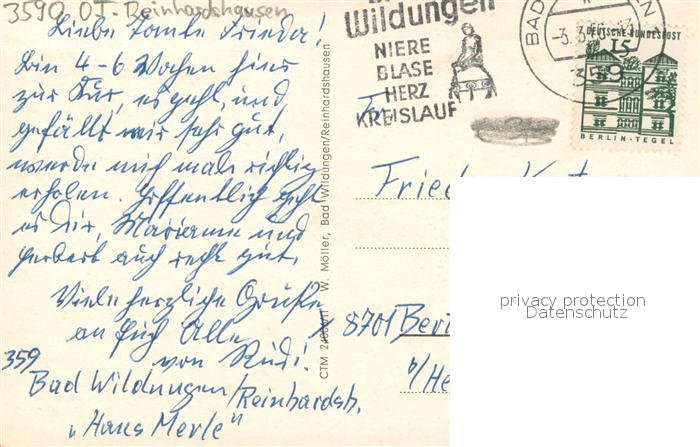 3590 OT-Reinhardshausen
Liebe Tante Frieda!
Bin 4-6 Wochen hier
zur Kur, es geht, und
gefällt mir sehr gut,
werde mich mal richtig
erholen. Hoffentlich geht
es Dir, Marianne und
Herbert auch recht gut.
Viele herzliche Grüße
an Euch Alle
von Rudi!
359
Bad Wildungen/Reinhardsh.
"Haus Merle"
CTM W. Möller, Bad Wildungen/Reinhardshausen
Wildungen
NIERE
BLASE
HERZ
KREISLAUF
BAD
359
DEUTSCHE BUNDESPOST
15
BERLIN-TEGEL
8701
b/He
privacy protection
Datenschutz